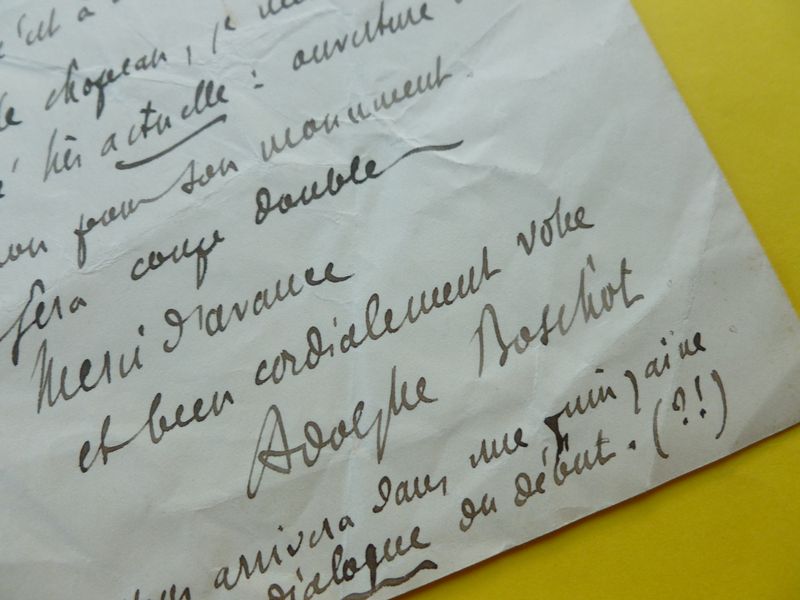 c'est à
le chapeau, je me
très actuelle : ouverture
pour son monument.
fera coup double
Merci d'avance
et bien cordialement votre
Adolphe Boschot
arrivera dans une quinzaine
dialogue du début. (?!)